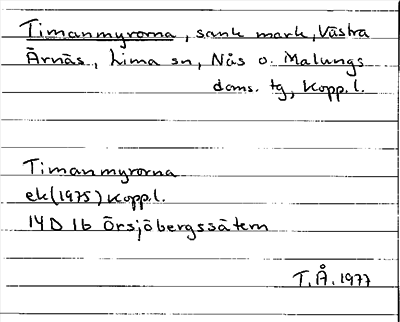 Timanmyrorna, sank mark, Västra
Ärnäs, Lima sn, Nås o. Malungs
doms. tg, Kopp.l.
Timanmyrorna
ek(1975) Kopp.l.
14D 1b Örsjöbergssätern
T.Å. 1977